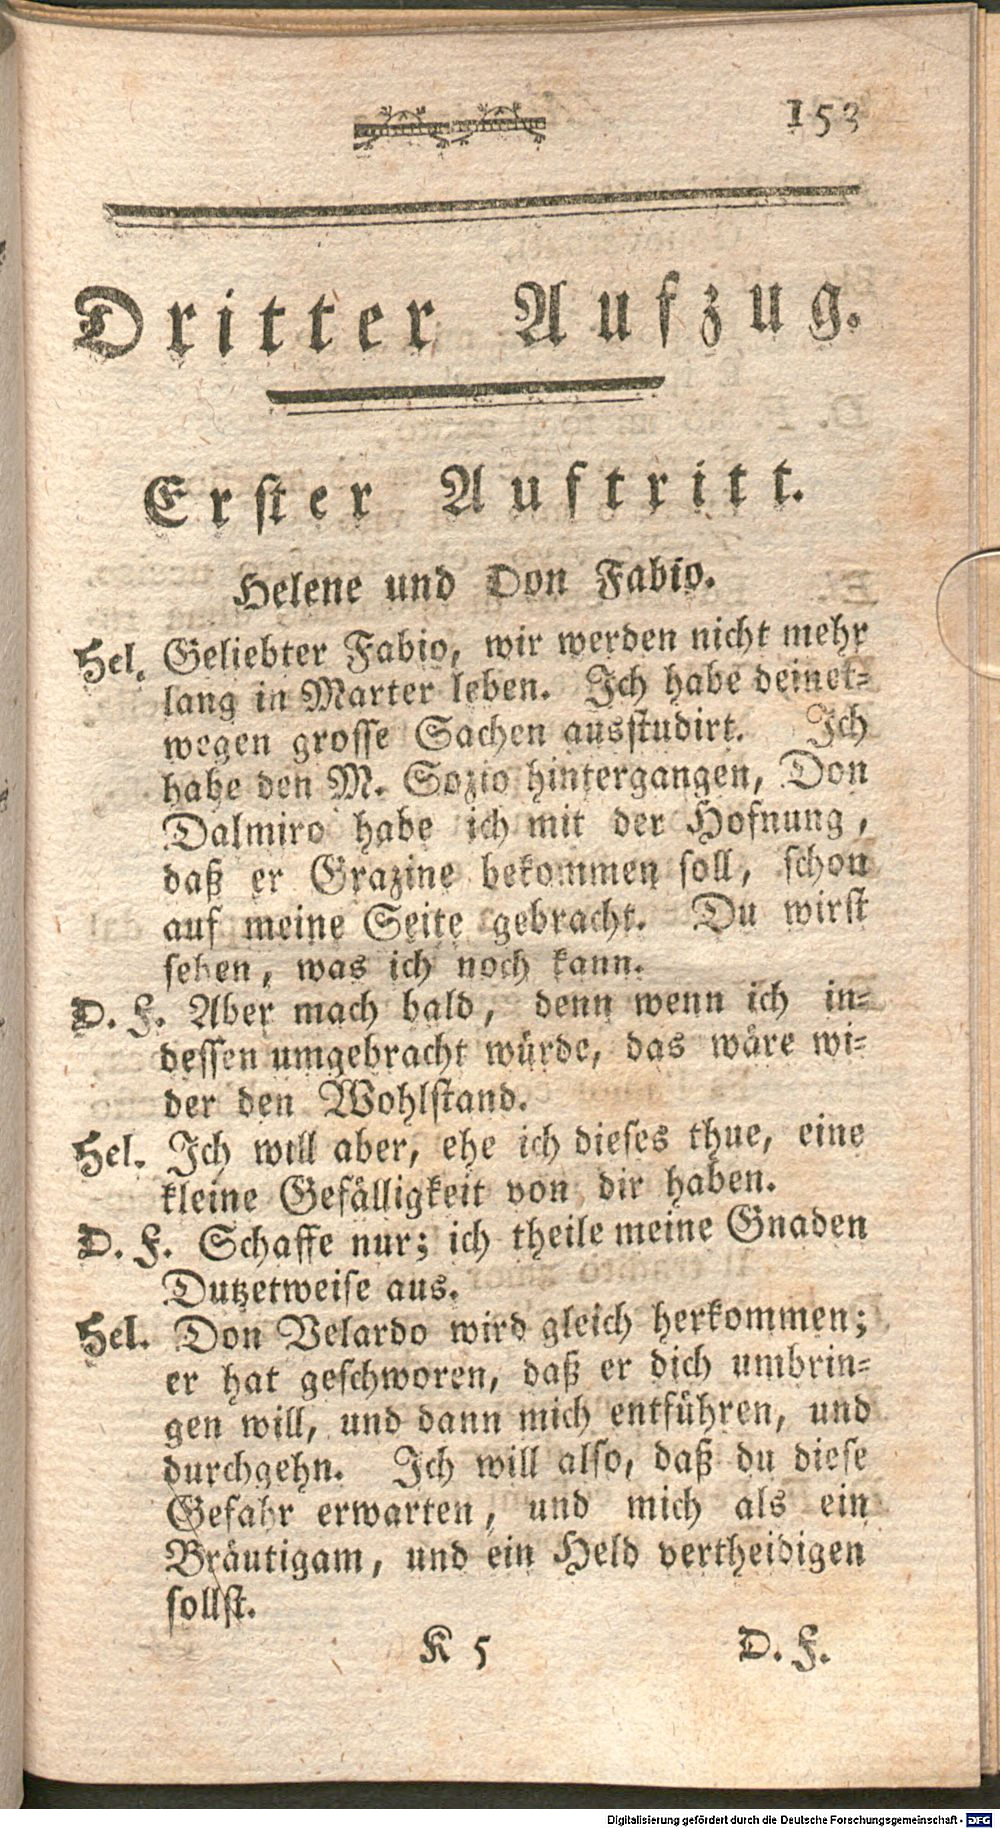 153
Dritter Aufzug.
Erster Auftritt.
Helene und Don Fabio.
Hel. Geliebter Fabio, wir werden nicht mehr
lang in Marter leben. Ich habe deinet-
wegen grosse Sachen ausstudirt. Ich
habe den M. Sozio hintergangen, Don
Dalmiro habe ich mit der Hofnung,
daß er Grazine bekommen soll, schon
auf meine Seite gebracht. Du wirst
sehen, was ich noch kann.
D. F. Aber mach bald, denn wenn ich in-
dessen umgebracht würde, das wäre wi-
der den Wohlstand.
Hel. Ich will aber, ehe ich dieses thue, eine
kleine Gefälligkeit von dir haben.
D. F. Schaffe nur; ich theile meine Gnaden
Dutzetweise aus.
Hel. Don Velardo wird gleich herkommen;
er hat geschworen, daß er dich umbrin-
gen will, und dann mich entführen, und
durchgehn. Ich will also, daß du diese
Gefahr erwarten, und mich als ein
Bräutigam, und ein Held vertheidigen
sollst.
K 5 D. F.
Digitalisierung gefördert durch die Deutsche Forschungsgemeinschaft - DFG